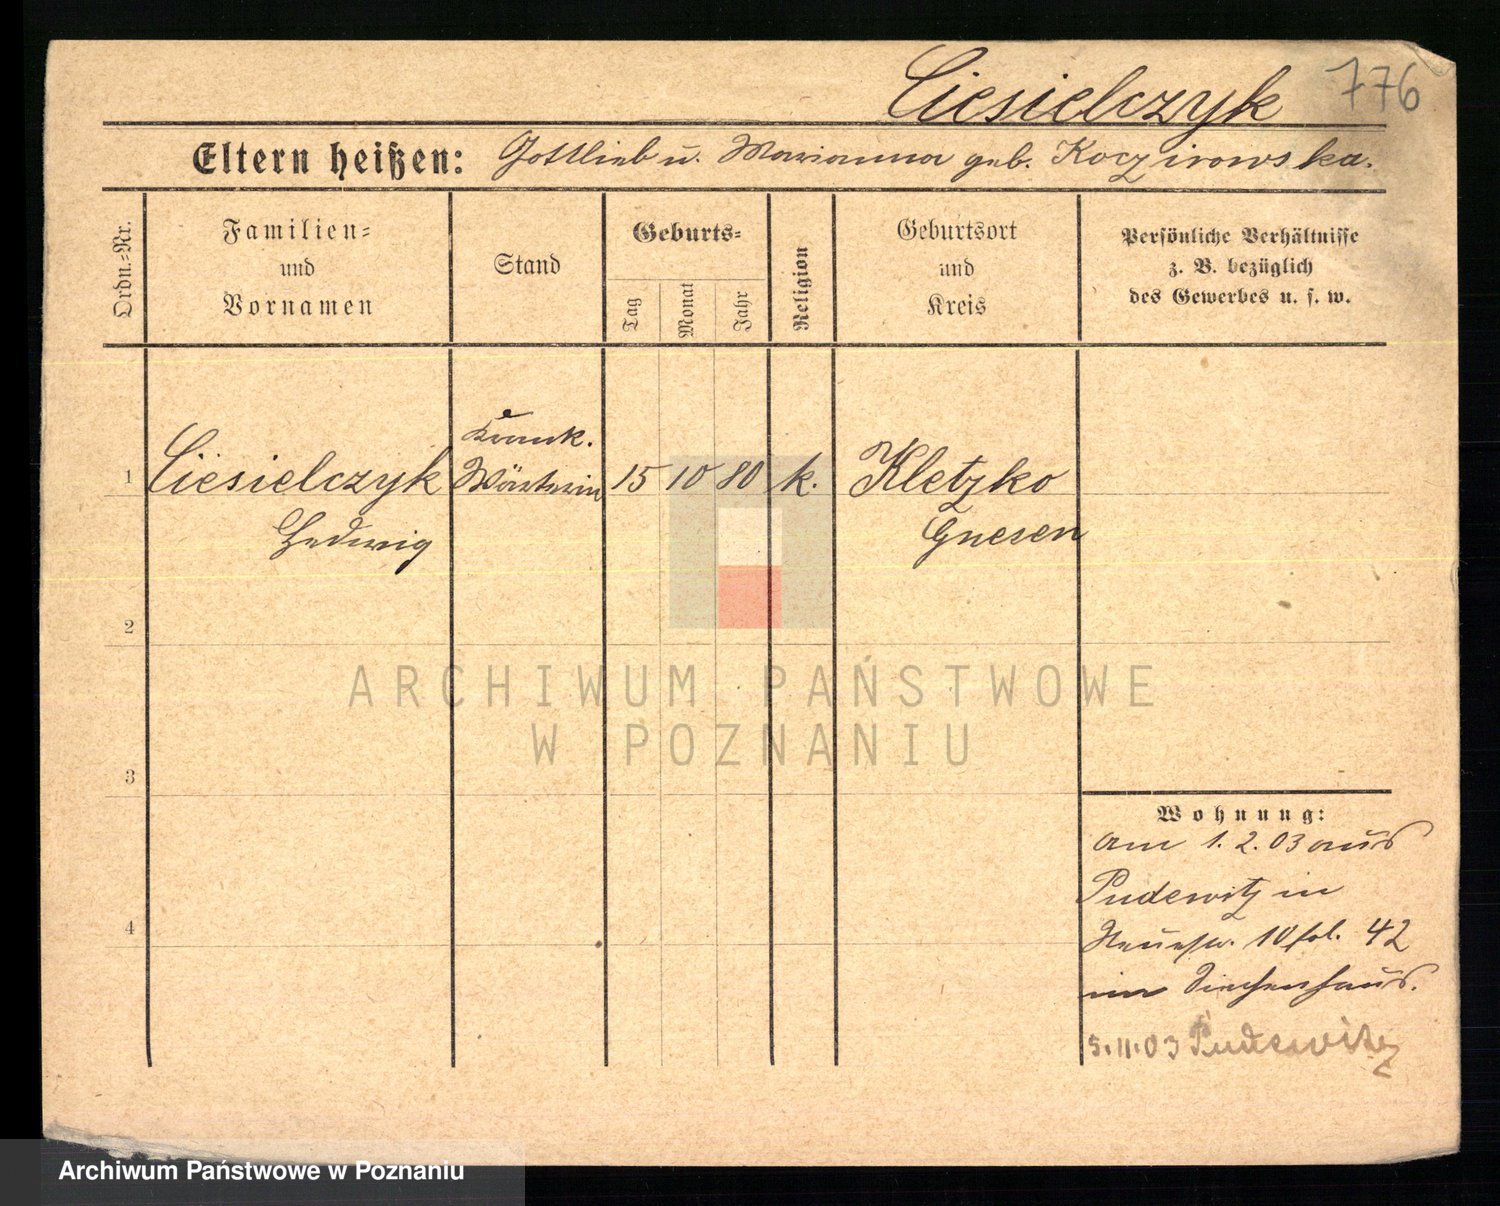 Ciesielczyk 776
Eltern heißen: Gottlieb u. Marianna geb. Koczirowska.
Ordn.-Nr.
Familien-
und
Vornamen
Stand
Geburts-
Tag
Monat
Jahr
Religion
Geburtsort
und
Kreis
Persönliche Verhältnisse
z. B. bezüglich
des Gewerbes u. s. w.
1 Ciesielczyk
Hedwig
Krank.
Wärterin
15 10 80 k.
Kletzko
Gnesen
2
3
4
Wohnung:
am 1. 2. 03 aus
Pudewitz in
10 fol. 42
im Siechenhaus.
5.11.03 Pudewitz
ARCHIWUM PAŃSTWOWE
W POZNANIU
Archiwum Państwowe w Poznaniu